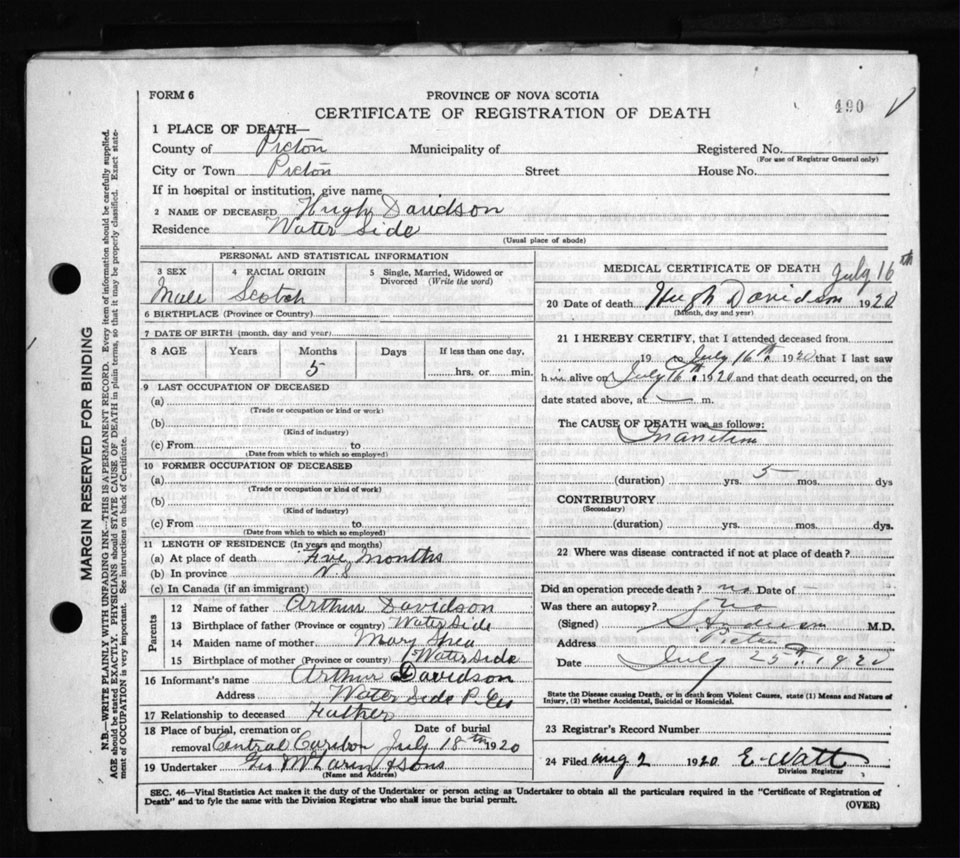 FORM 6
PROVINCE OF NOVA SCOTIA
CERTIFICATE OF REGISTRATION OF DEATH
490
1 PLACE OF DEATH—
County of Pictou Municipality of Registered No.
(For use of Registrar General only)
City or Town Pictou Street House No.
If in hospital or institution, give name
2 NAME OF DECEASED Hugh Davidson
Residence Water Side
(Usual place of abode)
PERSONAL AND STATISTICAL INFORMATION
3 SEX 4 RACIAL ORIGIN 5 Single, Married, Widowed or
Divorced (Write the word)
Male Scotch
6 BIRTHPLACE (Province or Country)
7 DATE OF BIRTH (month, day and year)
8 AGE Years Months Days If less than one day,
5 hrs. or min.
9 LAST OCCUPATION OF DECEASED
(a)
(Trade or occupation or kind or work)
(b)
(Kind of industry)
(c) From to
(Date from which to which so employed)
10 FORMER OCCUPATION OF DECEASED
(a)
(Trade or occupation or kind of work)
(b)
(Kind of industry)
(c) From to
(Date from which to which so employed)
11 LENGTH OF RESIDENCE (In years and months)
(a) At place of death Five Months
(b) In province N.S
(c) In Canada (if an immigrant)
Parents
12 Name of father Arthur Davidson
13 Birthplace of father (Province or country) Water Side
14 Maiden name of mother Mary Shea
15 Birthplace of mother (Province or country) Water Side
16 Informant's name Arthur Davidson
Address Water Side P. Co
17 Relationship to deceased Father
18 Place of burial, cremation or removal Central Caribou Date of burial July 18th 1920
19 Undertaker Geo McLaren & Sons
(Name and Address)
MEDICAL CERTIFICATE OF DEATH July 16th
20 Date of death Hugh Davidson 1920
(Month, day and year)
21 I HEREBY CERTIFY, that I attended deceased from
19 to July 16th 1920 that I last saw
him alive on July 16th 1920 and that death occurred, on the
date stated above, at — m.
The CAUSE OF DEATH was as follows:
Inanition
(duration) yrs. 5 mos. dys
CONTRIBUTORY
(Secondary)
(duration) yrs. mos. dys.
22 Where was disease contracted if not at place of death?
Did an operation precede death? no Date of
Was there an autopsy? no
(Signed) M.D.
Address Pictou
Date July 25th 1920
State the Disease causing Death, or in death from Violent Causes, state (1) Means and Nature of
Injury, (2) whether Accidental, Suicidal or Homicidal.
23 Registrar's Record Number
24 Filed Aug 2 1920 E. Watt
Division Registrar
SEC. 46—Vital Statistics Act makes it the duty of the Undertaker or person acting as Undertaker to obtain all the particulars required in the "Certificate of Registration of
Death" and to fyle the same with the Division Registrar who shall issue the burial permit.
(OVER)
MARGIN RESERVED FOR BINDING
N.B.—WRITE PLAINLY WITH UNFADING INK—THIS IS A PERMANENT RECORD. Every item of information should be carefully supplied.
AGE should be stated EXACTLY. PHYSICIANS should STATE CAUSE OF DEATH in plain terms, so that it may be properly classified. Exact statement of OCCUPATION is very important. See instructions on back of Certificate.